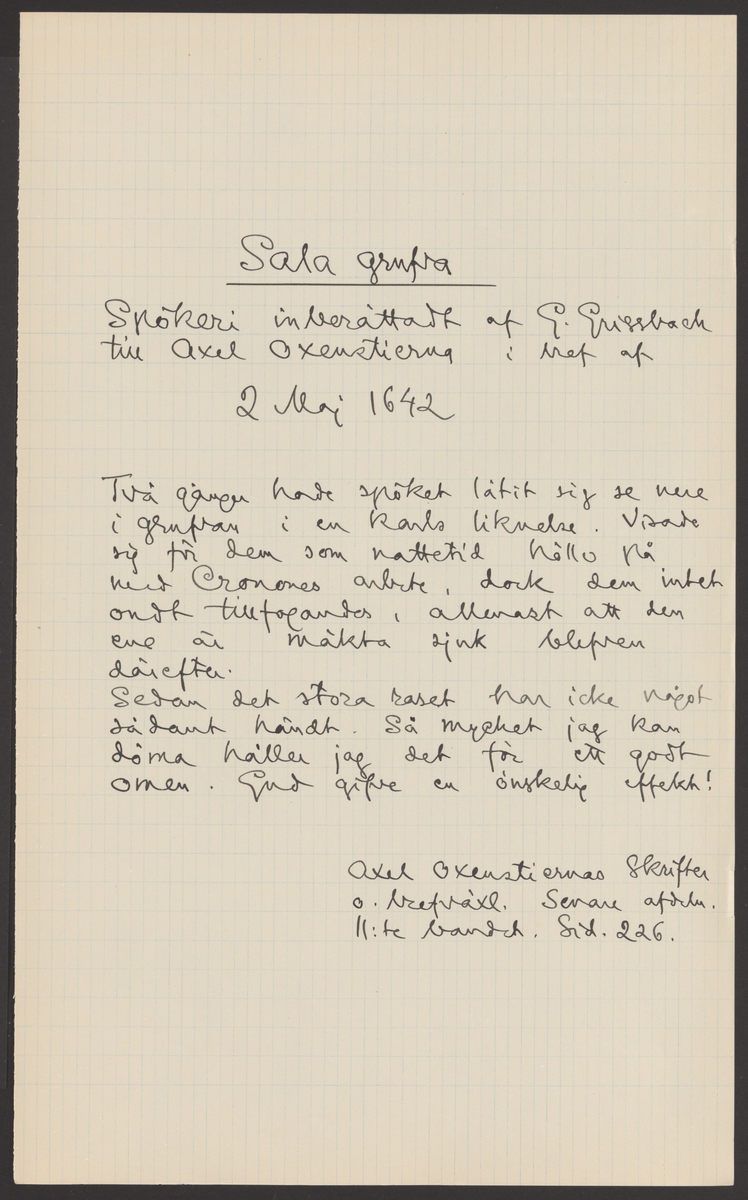 Sala grufva
Spökeri inberättadt af G. Grissbach
till Axel Oxenstierna i bref af
2 Maj 1642
Två gånger hade spöket låtit sig se nere
i grufvan i en karls liknelse. Visade
sig för dem som nattetid höllo på
med Cronones arbete, dock dem intet
ondt tillfogandes, allenast att den
ene är mäkta sjuk blefven
därefter.
Sedan det stora raset har icke något
sådant händt. Så mycket jag kan
döma håller jag det för ett godt
omen. Gud gifve en önskelig effekt!
Axel Oxenstiernas Skrifter
o. brefväxl. Senare afdeln.
11:te bandet. Sid. 226.